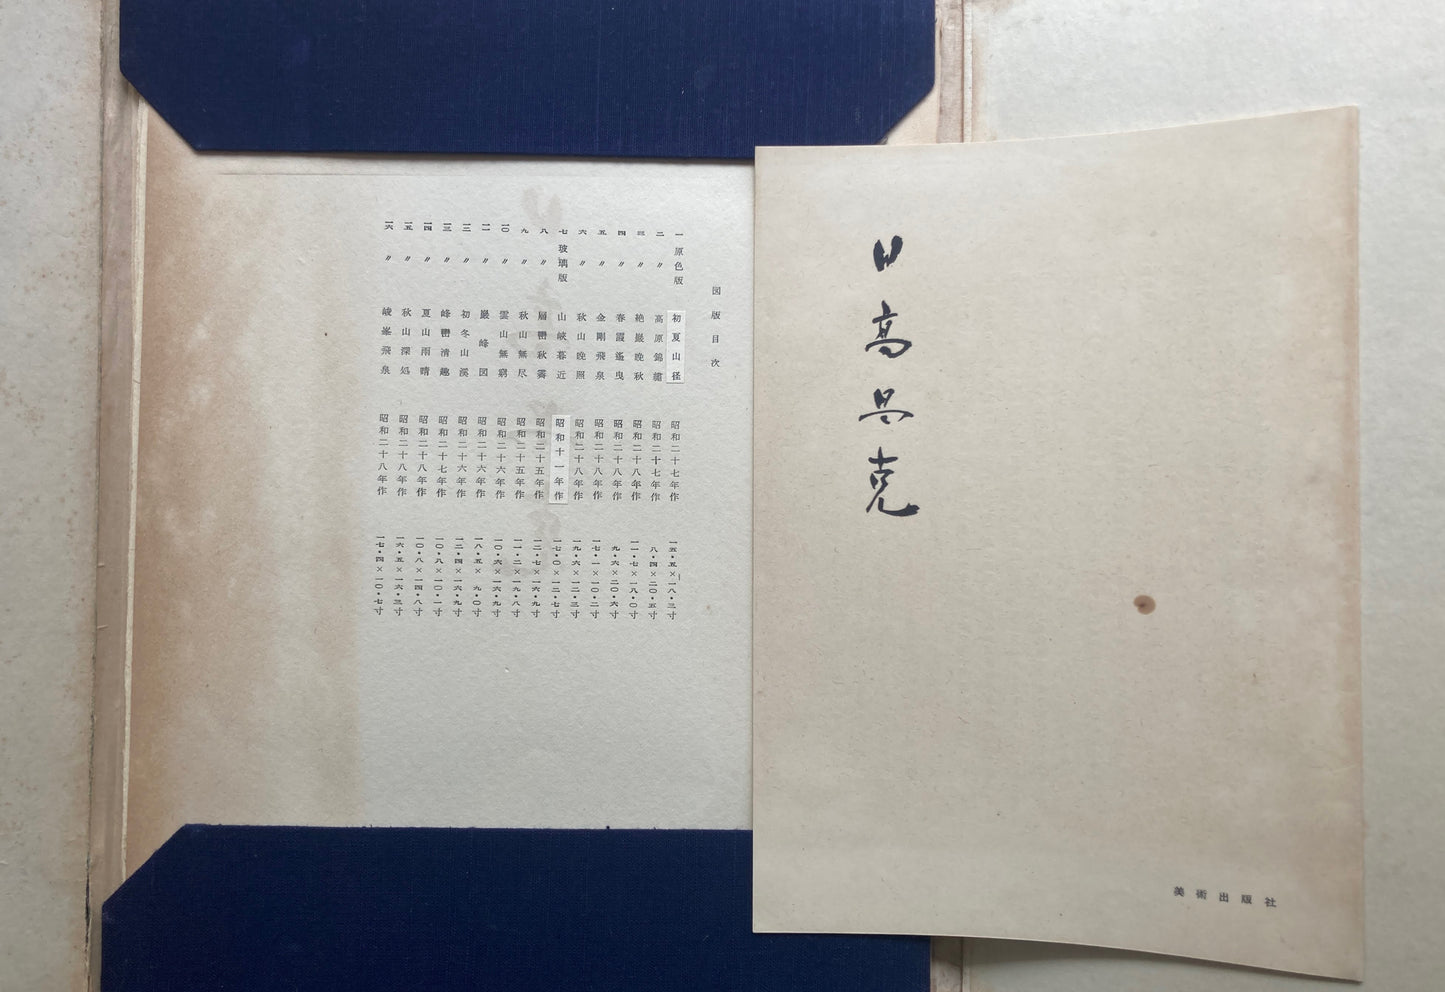 日高昌克
美術出版社
図版目次
一 原色版 初夏山径 昭和二十七年作 一五・五×一八・三寸
二 〃 高原錦繡 昭和二十七年作 八・四×二〇・五寸
三 〃 絶巌晩秋 昭和二十八年作 一一・七×一八・〇寸
四 〃 春霞遙曳 昭和二十八年作 九・六×二〇・六寸
五 〃 金剛飛泉 昭和二十八年作 一七・一×一〇・二寸
六 〃 秋山晩照 昭和二十八年作 一九・六×一二・三寸
七 玻璃版 山峡暮近 昭和十一年作 一七・〇×一二・七寸
八 〃 層巒秋霽 昭和二十五年作 一二・七×一六・九寸
九 〃 秋山無尽 昭和二十五年作 一一・二×一九・八寸
一〇 〃 雲山無窮 昭和二十六年作 一〇・六×一六・九寸
一一 〃 巌峰図 昭和二十六年作 一八・五×九・〇寸
一二 〃 初冬山渓 昭和二十六年作 一二・四×一六・九寸
一三 〃 峰巒清趣 昭和二十七年作 一〇・八×一〇・一寸
一四 〃 夏山雨晴 昭和二十八年作 一〇・八×一四・八寸
一五 〃 秋山深処 昭和二十八年作 一六・五×一六・三寸
一六 〃 峻峯飛泉 昭和二十八年作 一七・四×一〇・七寸